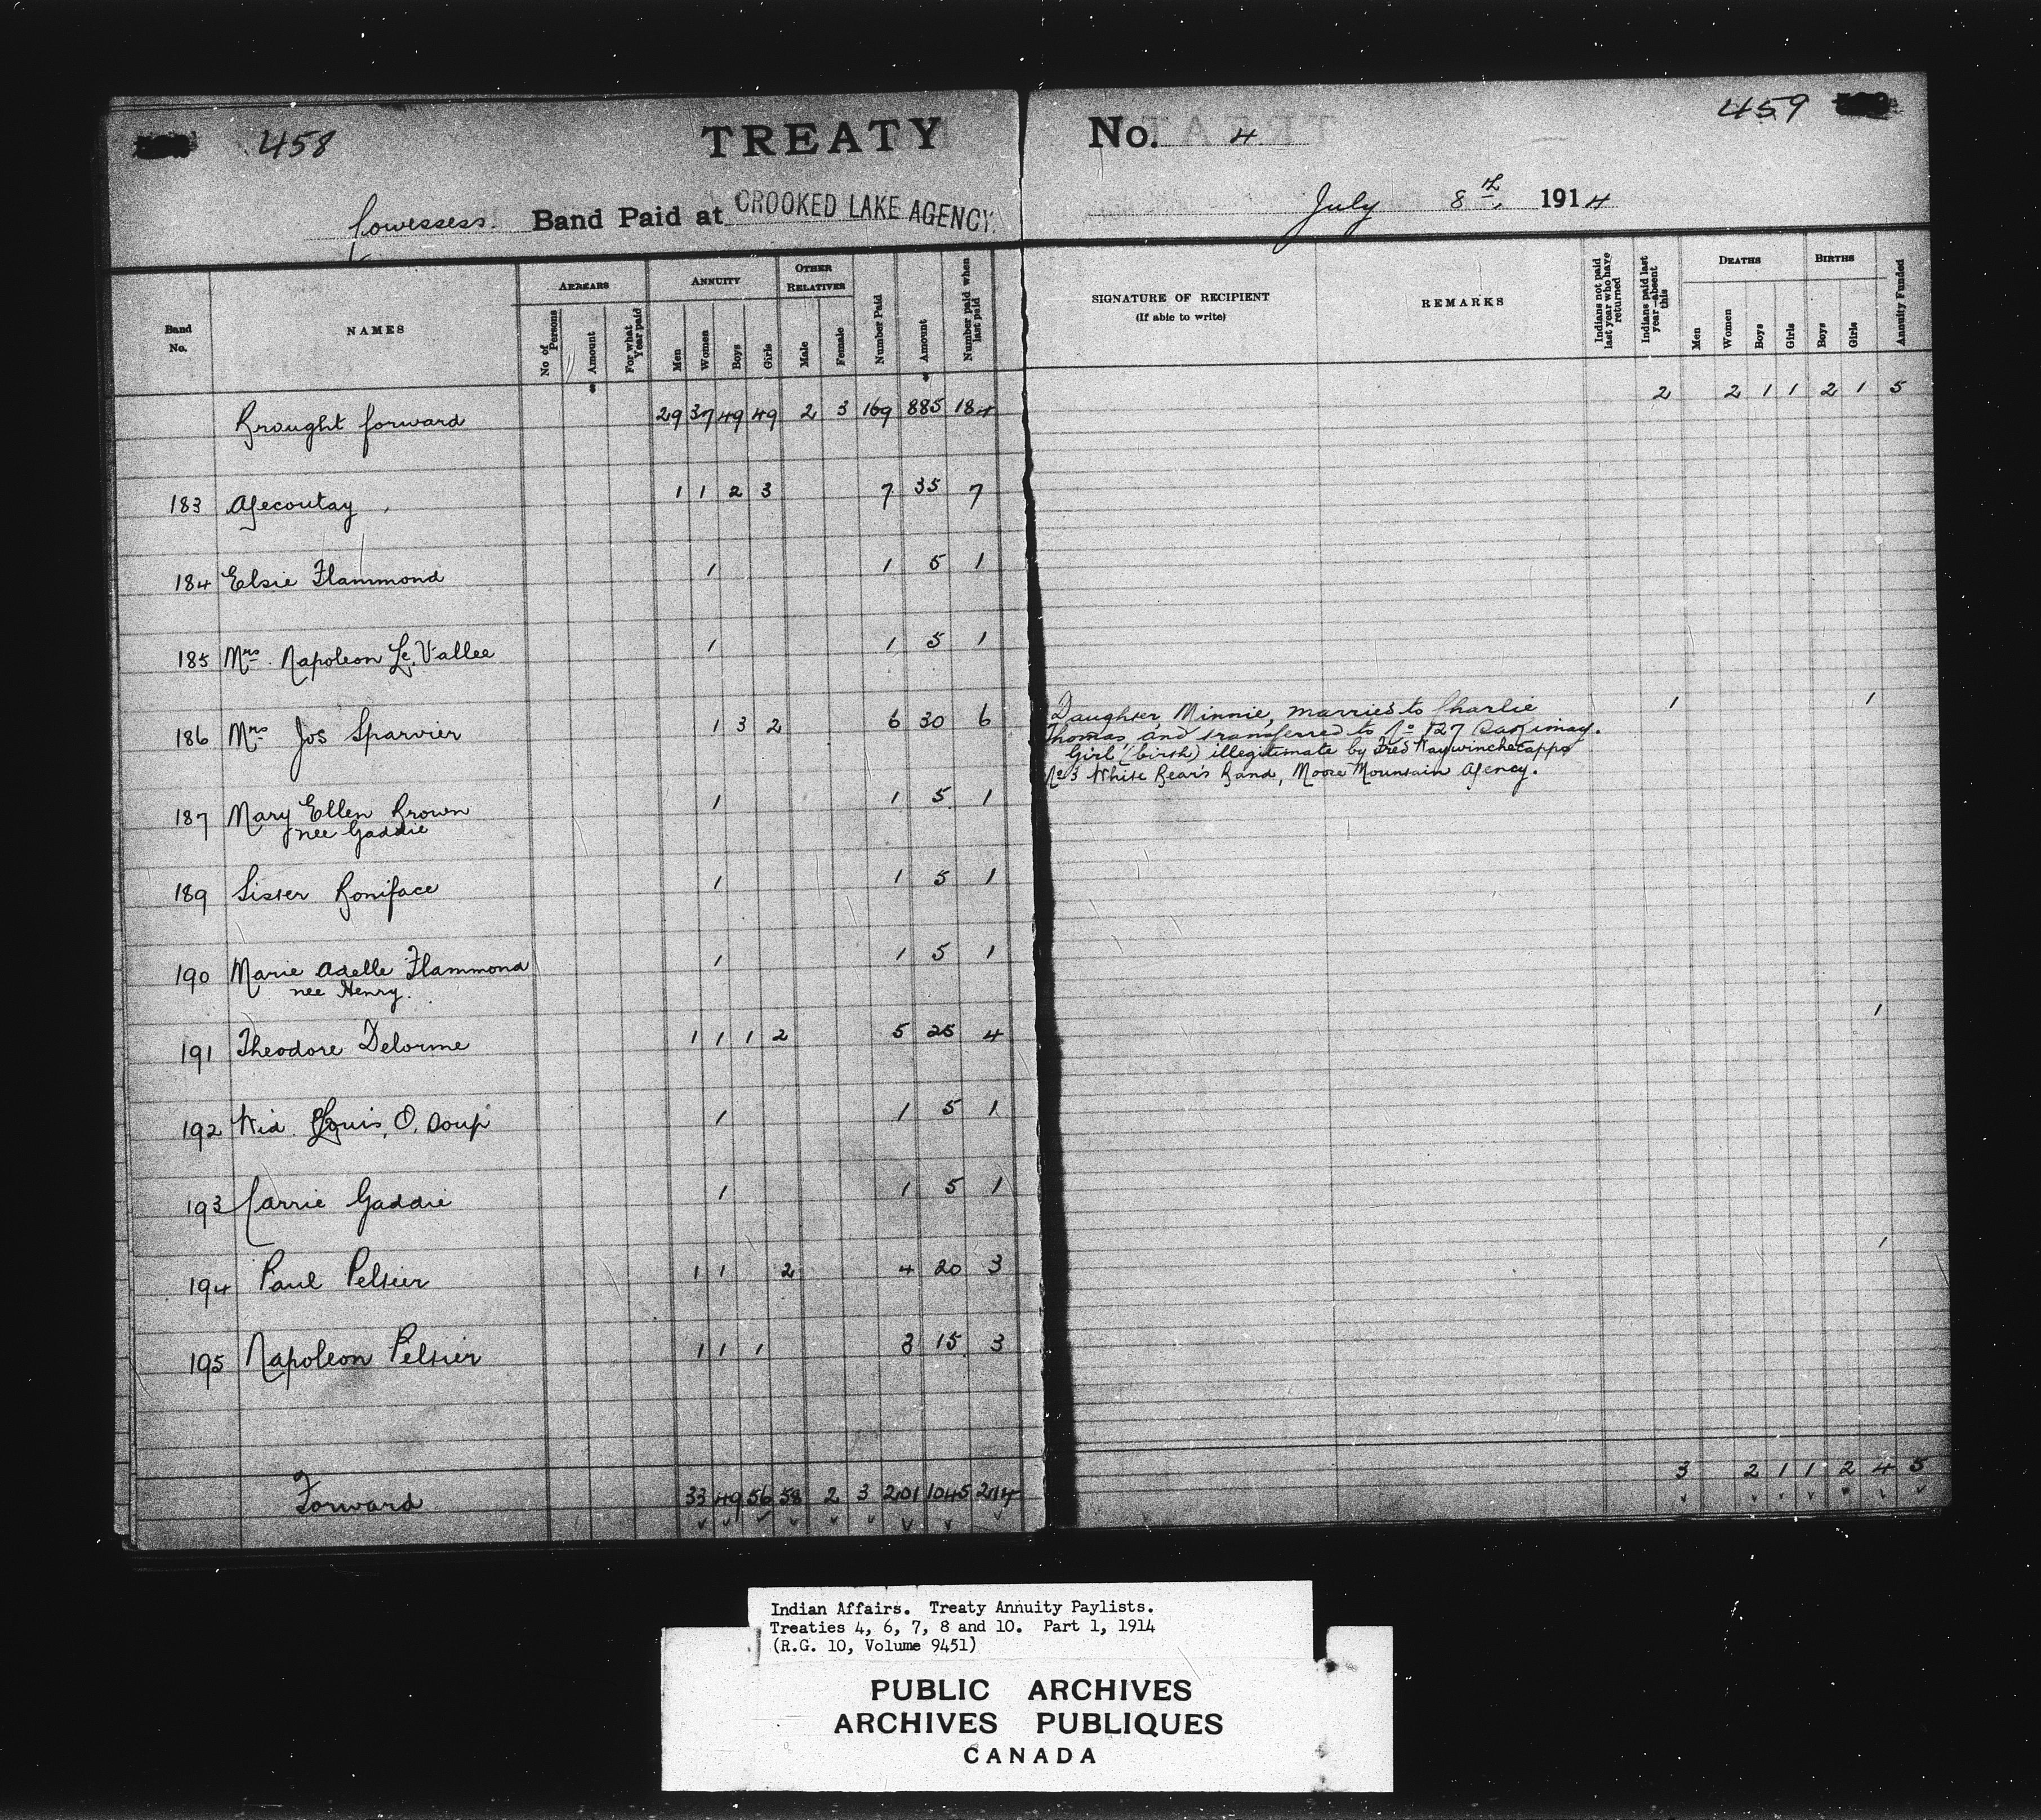 458
459
TREATY No. 4
Cowessess. Band Paid at CROOKED LAKE AGENCY. July 8th, 1914
Band No.
NAMES
ARREARS
No of Persons
Amount
For what Year paid
ANNUITY
Men
Women
Boys
Girls
OTHER RELATIVES
Male
Female
Number Paid
Amount
Number paid when last paid
SIGNATURE OF RECIPIENT
(If able to write)
REMARKS
Indians not paid last year who have returned
Indians paid last year—absent this
DEATHS
Men
Women
Boys
Girls
BIRTHS
Boys
Girls
Annuity Funded
Brought forward 29 37 49 49 2 3 169 885 184 2 2 1 1 2 1 5
183 Agecoutay 1 1 2 3 7 35 7
184 Elsie Flammond 1 1 5 1
185 Mrs. Napoleon Le Vallee 1 1 5 1
186 Mrs Jos Sparvier 1 3 2 6 30 6 1 1
Daughter, Minnie, married to Charlie
Thomas and transferred to No 127 Sakimay.
Girl (birth) illegitimate by Fred Kaywinchetappo
No 3 White Bear's Band, Moose Mountain Agency.
187 Mary Ellen Brown 1 1 5 1
nee Gaddie
189 Sister Boniface 1 1 5 1
190 Marie Adelle Flammond 1 1 5 1
nee Henry.
191 Theodore Delorme 1 1 1 2 5 25 4 1
192 Wid. Louis O. Soup 1 1 5 1
193 Carrie Gaddie 1 1 5 1
194 Paul Peltier 1 1 2 4 20 3 1
195 Napoleon Peltier 1 1 1 3 15 3
Forward 33 49 56 58 2 3 201 1045 214 3 2 1 1 2 4 5
Indian Affairs. Treaty Annuity Paylists.
Treaties 4, 6, 7, 8 and 10. Part 1, 1914
(R.G. 10, Volume 9451)
PUBLIC ARCHIVES
ARCHIVES PUBLIQUES
CANADA